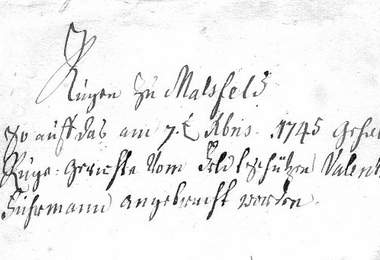 Rügen zu Malsfeld
so auff das am 7.t Xbris. 1745 gehal
Rüge-Gerichte vom Feldschützen Valent
Fuhrmann angebracht worden.